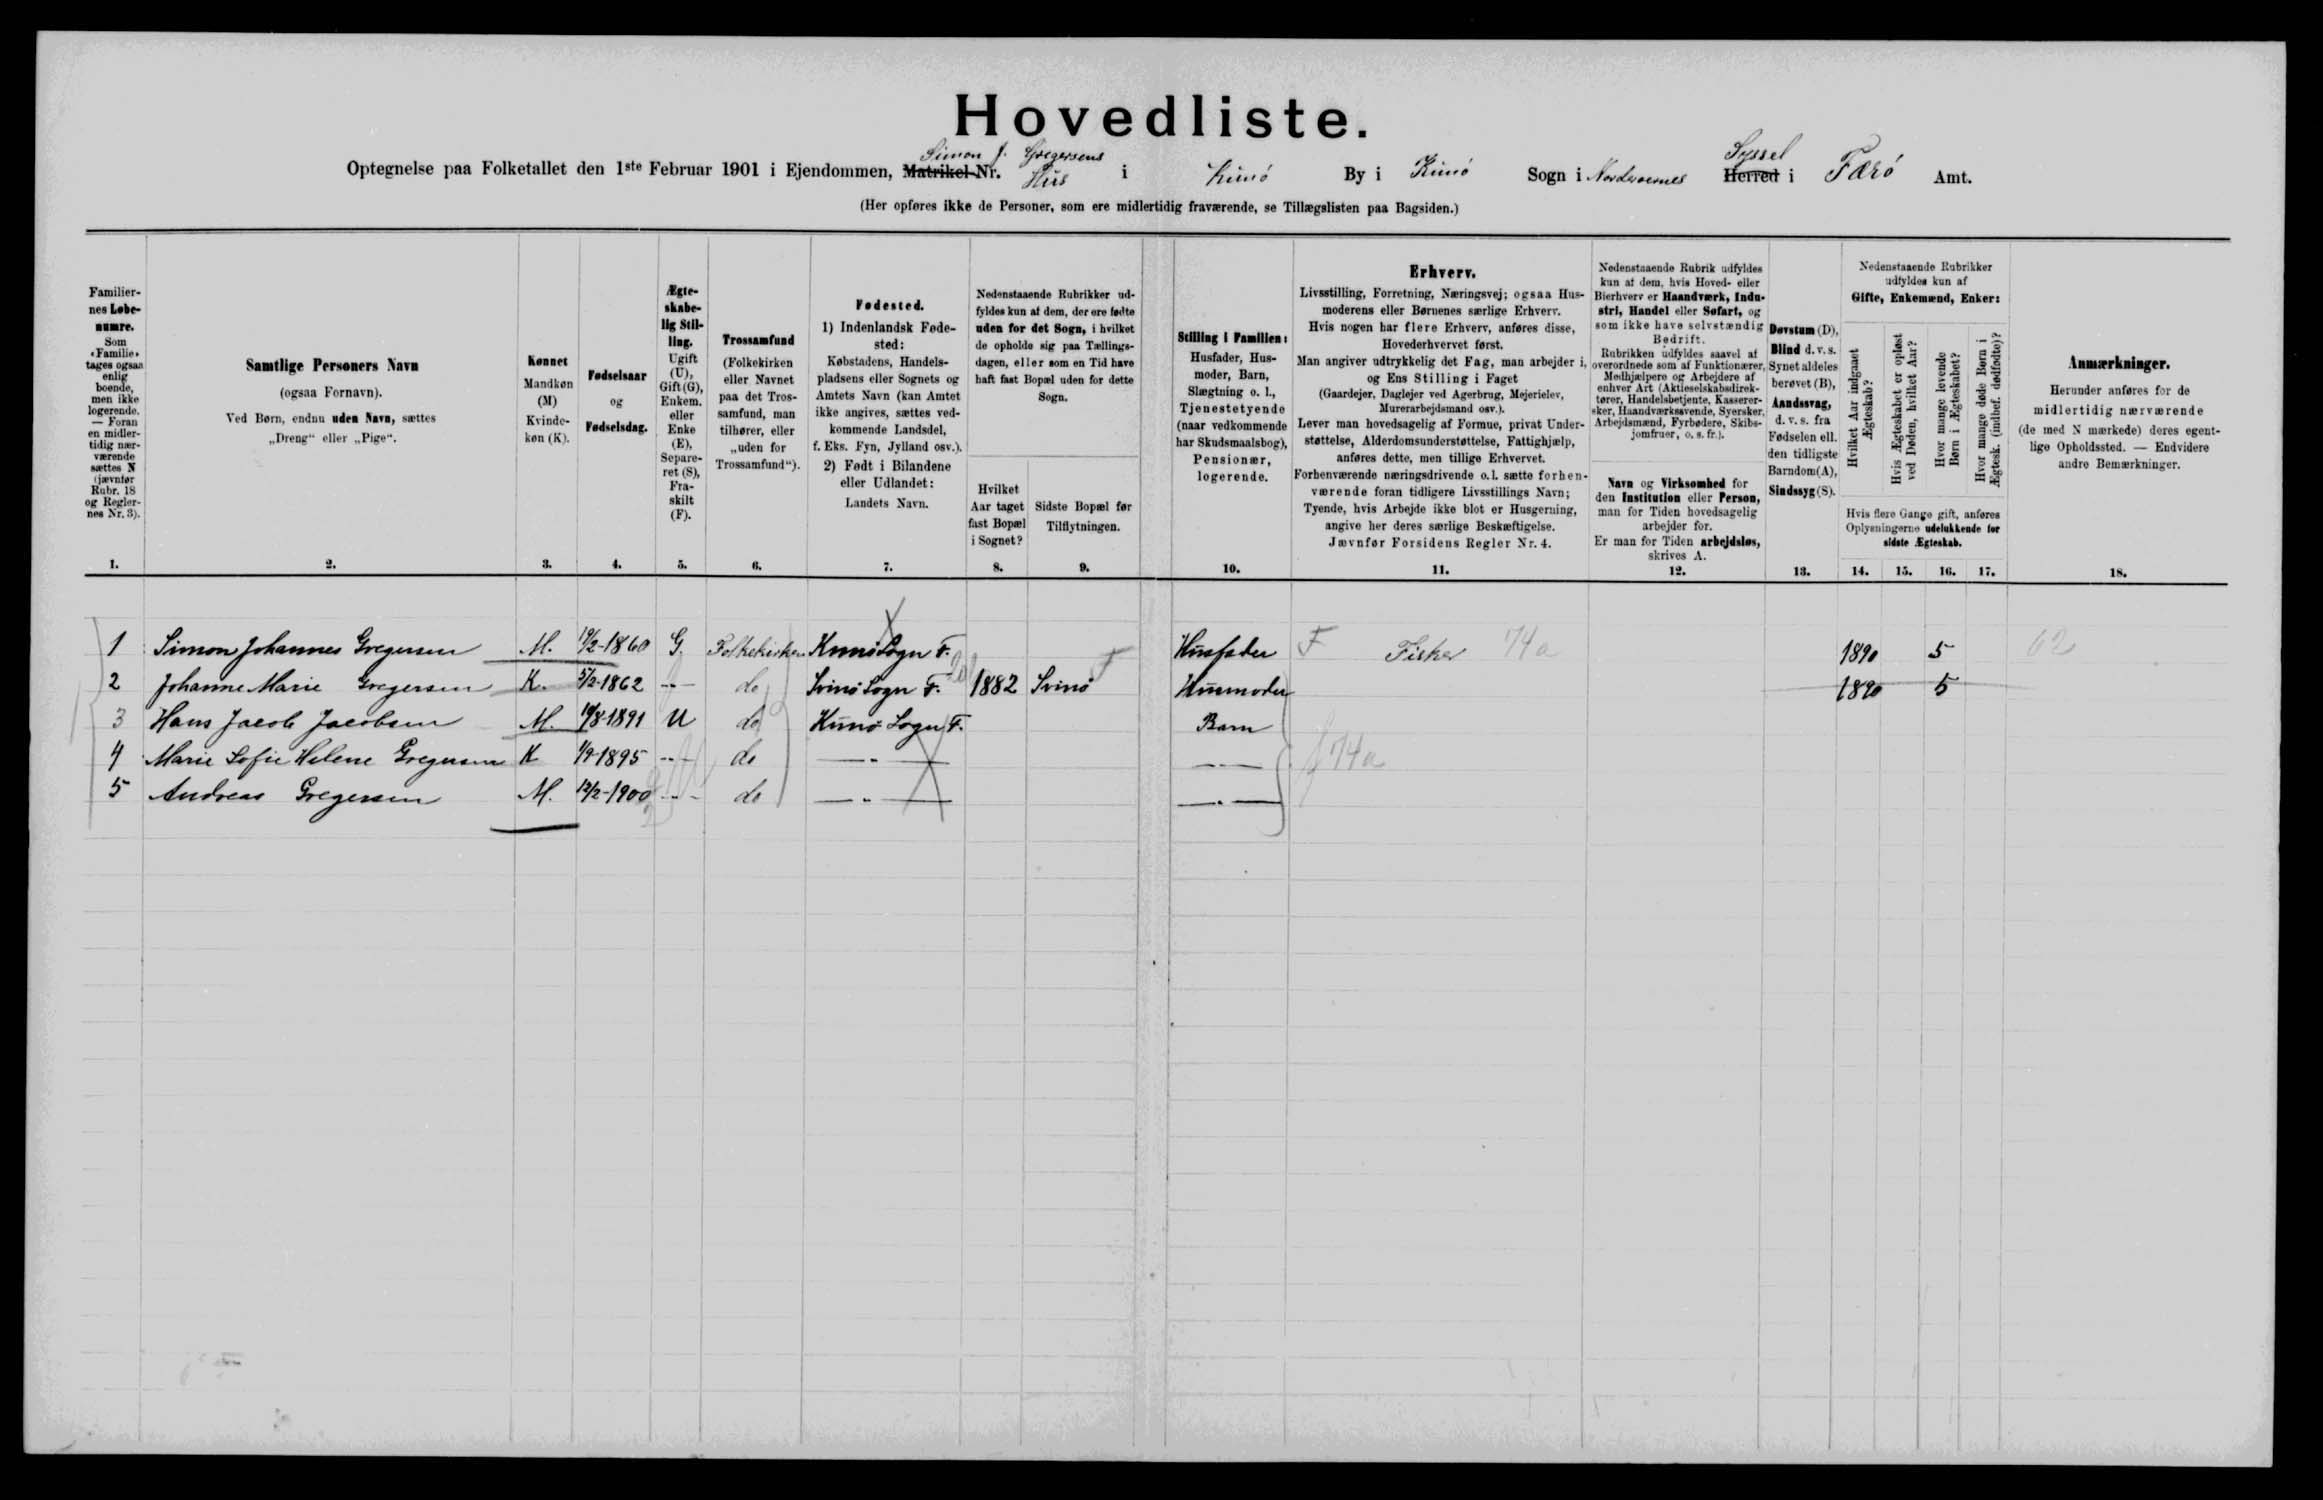 Hovedliste.
Simon J. Gregersens
Syssel
Optegnelse paa Folketallet den 1ste Februar 1901 i Ejendommen, Matrikel-Nr. Hus i Kunö By i Kunö Sogn i Norderoernes Herred i Færö Amt.
(Her opføres ikke de Personer, som ere midlertidig fraværende, se Tillægslisten paa Bagsiden.)
Familier-
nes Løbe-
numre.
Som
«Familie»
tages ogsaa
enlig
boende,
men ikke
logerende.
— Foran
en midler-
tidig nær-
værende
sættes N
(jævnfør
Rubr. 18
og Regler-
nes Nr. 3).
1.
Samtlige Personers Navn
(ogsaa Fornavn).
Ved Børn, endnu uden Navn, sættes
„Dreng“ eller „Pige“.
2.
Kønnet
Mandkøn
(M)
Kvinde-
køn (K).
3.
Fødselsaar
og
Fødselsdag.
4.
Ægte-
skabe-
lig Stil-
ling.
Ugift
(U),
Gift (G),
Enkem.
eller
Enke
(E),
Separe-
ret (S),
Fra-
skilt
(F).
5.
Trossamfund
(Folkekirken
eller Navnet
paa det Tros-
samfund, man
tilhører, eller
„uden for
Trossamfund“).
6.
Fødested.
1) IndenlandskFøde-
sted:
Købstadens, Handels-
pladsens eller Sognets og
Amtets Navn (kan Amtet
ikke angives, sættes ved-
kommende Landsdel,
f. Eks. Fyn, Jylland osv.).
2) Født i Bilandene
eller Udlandet:
Landets Navn.
7.
Nedenstaaende Rubrikker ud-
fyldes kun af dem, der ere fødte
uden for det Sogn, i hvilket
de opholde sig paa Tællings-
dagen, eller som en Tid have
haft fast Bopæl uden for dette
Sogn.
Hvilket
Aar taget
fast Bopæl
i Sognet?
8.
Sidste Bopæl før
Tilflytningen.
9.
Stilling i Familien:
Husfader, Hus-
moder, Barn,
Slægtning o. l.,
Tjenestetyende
(naar vedkommende
har Skudsmaalsbog),
Pensionær,
logerende.
10.
Erhverv.
Livsstilling, Forretning, Næringsvej; ogsaa Hus-
moderens eller Børnenes særlige Erhverv.
Hvis nogen har flere Erhverv, anføres disse,
Hovederhvervet først.
Man angiver udtrykkelig det Fag, man arbejder i,
og Ens Stilling i Faget
(Gaardejer, Daglejer ved Agerbrug, Mejerielev,
Murerarbejdsmand osv.).
Lever man hovedsagelig af Formue, privat Under-
støttelse, Alderdomsunderstøttelse, Fattighjælp,
anføres dette, men tillige Erhvervet.
Forhenværende næringsdrivende o.l. sætte forhen-
værende foran tidligere Livsstillings Navn;
Tyende, hvis Arbejde ikke blot er Husgerning,
angive her deres særlige Beskæftigelse.
Jævnfør Forsidens Regler Nr. 4.
11.
Nedenstaaende Rubrik udfyldes
kun af dem, hvis Hoved- eller
Bierhverv er Haandværk, Indu-
stri, Handel eller Søfart, og
som ikke have selvstændig
Bedrift.
Rubrikken udfyldes saavel af
overordnede som af Funktionærer,
Medhjælpere og Arbejdere af
enhver Art (Aktieselskabsdirek-
tører, Handelsbetjente, Kasserer-
sker, Haandværkssvende, Syersker,
Arbejdsmænd, Fyrbødere, Skibs-
jomfruer, o. s. fr.).
Navn og Virksomhed for
den Institution eller Person,
man for Tiden hovedsagelig
arbejder for.
Er man for Tiden arbejdsløs,
skrives A.
12.
Døvstum (D),
Blind d. v. s.
Synet aldeles
berøvet (B),
Aandssvag,
d. v. s. fra
Fødselen ell.
den tidligste
Barndom (A),
Sindssyg (S).
13.
Nedenstaaende Rubrikker
udfyldes kun af
Gifte, Enkemænd, Enker:
Hvilket Aar indgaaet
Ægteskab?
Hvis Ægteskabet er opløst
ved Døden, hvilket Aar?
Hvor mange levende
Børn i Ægteskabet?
Hvor mange døde Børn i
Ægtesk. (indbef. dødfødte)?
Hvis flere Gange gift, anføres
Oplysningerne udelukkende for
sidste Ægteskab.
14. 15. 16. 17.
Anmærkninger.
Herunder anføres for de
midlertidig nærværende
(de med N mærkede) deres egent-
lige Opholdssted. — Endvidere
andre Bemærkninger.
18.
1 Simon Johannes Gregersen M. 19/2-1860 G. Folkekirken Kunö Sogn F. Husfader F Fisker 74a 1890 5 62
2 Johanne Marie Gregersen K. 5/2-1862 -„- do Svinö Sogn F. 1882 Svinö F Husmoder 1890 5
3 Hans Jacob Jacobsen M. 10/8-1891 U do Kunö Sogn F. Barn
4 Marie Sofie Helene Gregersen K 1/9-1895 -„- do -„- -„- 74a
5 Andreas Gregersen M. 12/2-1900 -„- do -„- -„-